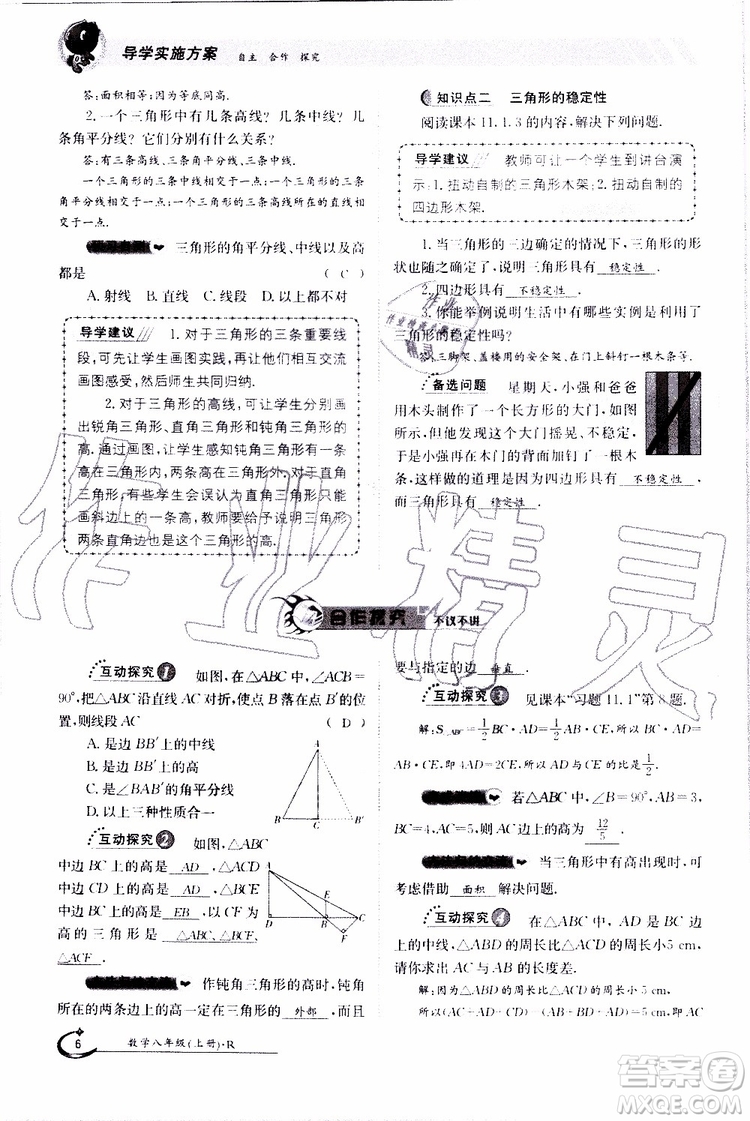 导学实施方案 自主 合作 探究
答:面积相等;因为等底同高.
2.一个三角形中有几条高线?几条中线?几
条角平分线?它们分别有什么关系?
答:有三条高线,三条中线,三条角平分线.
一个三角形中三条中线相交于一点,三条角平分
线相交于一点,三条高线所在的直线相交于一点.
三角形的角平分线、中线以及高
都是 ( C )
A.射线 B.直线 C.线段 D.以上都不对
导学建议 1.对于三角形的三条重要线
段,可先让学生画图实践,再让他们相互交流
画图感受,然后师生共同归纳.
2.对于三角形的高线,可让学生分别画
出锐角三角形、直角三角形和钝角三角形的
高.通过画图,让学生感知钝角三角形有两条
高在三角形外部.在画图时,特别是对于直角
三角形,有些学生会误认为直角三角形只能
画斜边上的一条高,教师要给予说明三角形
两条直角边也是三角形的高.
知识点二 三角形的稳定性
阅读课本11.1.3的内容,解决下列问题.
导学建议 教师可让一个学生到讲台演
示:1.扭动自制的三角形木架;2.扭动自制的
四边形木架.
1.当三角形的三边确定的情况下,三角形的形
状也随之确定了,说明三角形具有 稳定性 .
2.四边形具有 不稳定性 .
3.你能举例说明生活中有哪些实例是应用了
三角形的稳定性吗?
答:三脚架、盖楼用的安全架、在门上斜钉一根木条等.
备选问题 星期天,小强和爸爸
用木头制作了一个长方形的大门,如图
所示,但大门摇晃、不稳固,
于是小强再在木门的背面加钉了一根木
条,这样做的道理是因为四边形具有 不稳定性 ,
而三角形具有 稳定性 .
合作探究 不议不讲
互动探究1 如图,在△ABC中,∠ACB=
90°,把△ABC沿直线AC对折,使点B落在点B′的位
置,则线段AC ( D )
A.是边BB′上的中线
B.是边BB′上的高
C.是∠BAB′的角平分线
D.以上三种性质合一
A
B C B′
互动探究2 如图,△ABC
中边BC上的高是 AD ,△ACD
中边CD上的高是 AD ,△BCE
中边BC上的高是 EB ,以CF为
高的三角形是 △ABC、△BCF、
△ACF
A
E
D B C
F
作钝角三角形的高时,钝角
所在的两条边上的高一定在三角形的 外部 ,高
要与指定的边 垂直 .
互动探究3 见课本“习题11.1”第8题.
解:S△ABC=1/2BC·AD=1/2AB·CE,所以BC·AD=
AB·CE,即4AD=2CE,所以AD与CE的比是1/2.
若∠B=90°,AB=3,
BC=4,AC=5,则边AC上的高为 12/5 .
当三角形中有高出现时,可
考虑借助 面积 解决问题.
互动探究4 在△ABC中,AD是BC边上
的中线,△ABD的周长比△ACD的周长小5 cm,
请你求出边AC与AB的长度差.
解:因为△ABD的周长比△ACD的周长小5 cm,
所以(AC+AD+CD)-(AB+AD+BD)=
6 数学八年级(上册)·R
作业精灵
答案圈
MXQE.COM